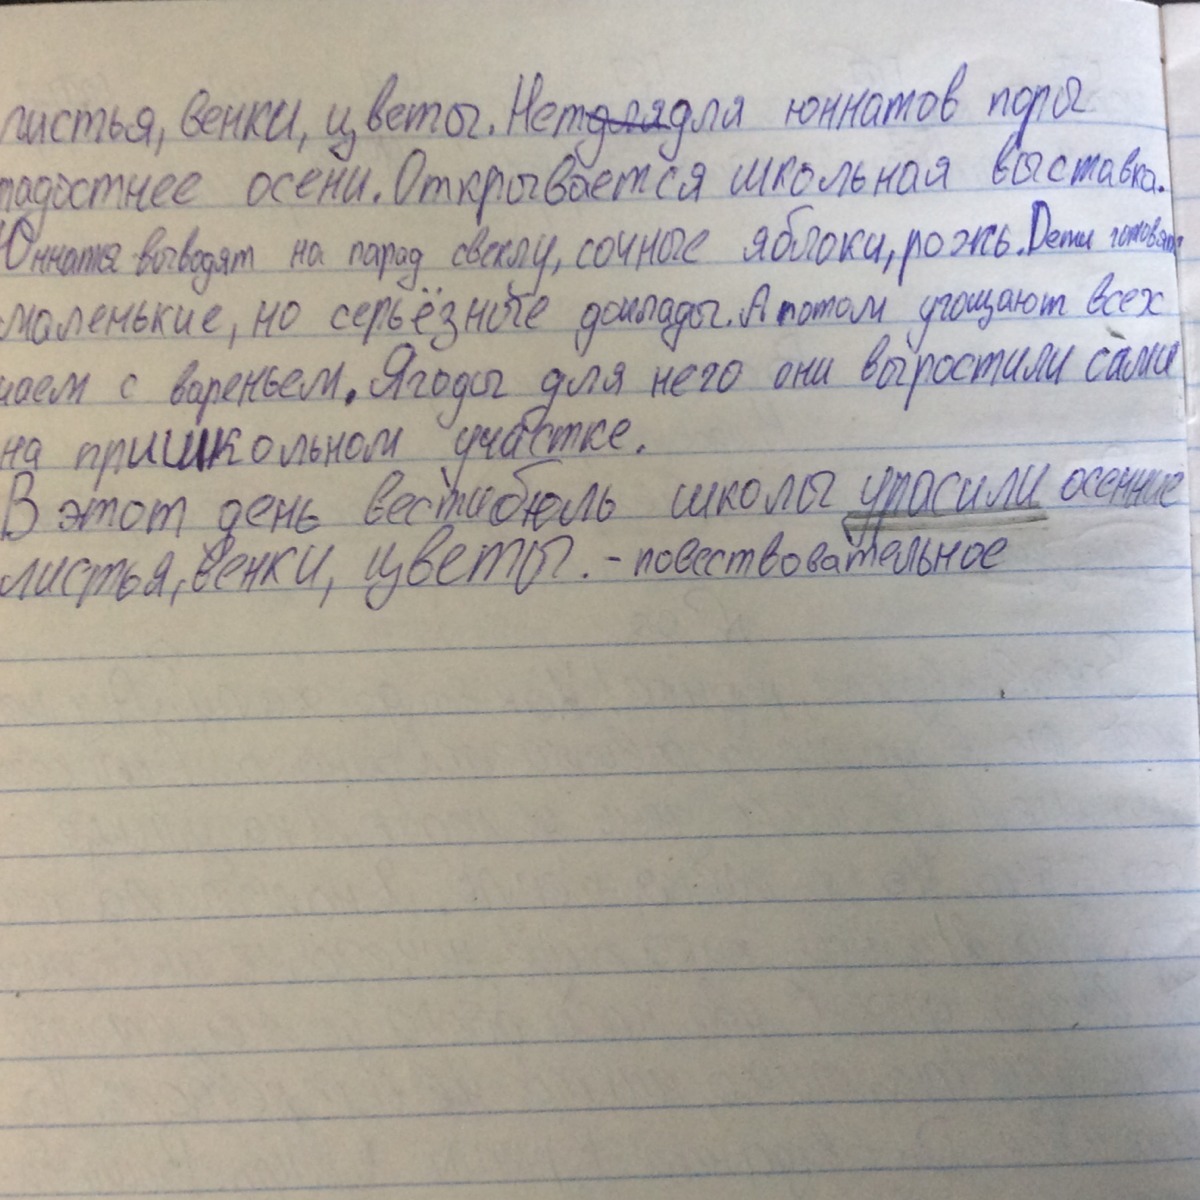 листья, венки, цветы. Нет для для юннатов поры
радостнее осени. Открывается школьная выставка.
Юннаты выводят на парад свеклу, сочные яблоки, рожь. Дети готовят
маленькие, но серьёзные доклады. А потом угощают всех
чаем с вареньем. Ягоды для него они выростили сами
на пришкольном участке.
В этот день вестибюль школы украсили осенние
листья, венки, цветы. - повествовательное